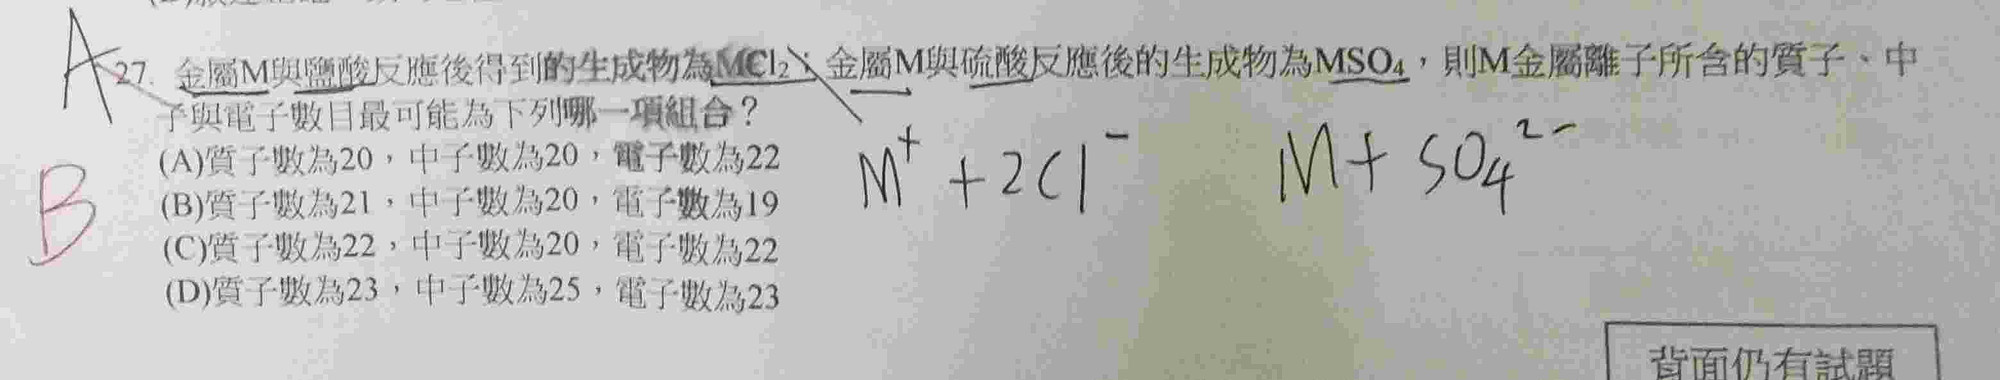 A
27. 金屬M與鹽酸反應後得到的生成物為MCl₂；金屬M與硫酸反應後的生成物為MSO₄，則M金屬離子所含的質子、中
子與電子數目最可能為下列哪一項組合？
(A)質子數為20，中子數為20，電子數為22
(B)質子數為21，中子數為20，電子數為19
(C)質子數為22，中子數為20，電子數為22
(D)質子數為23，中子數為25，電子數為23
B
M⁺ + 2Cl⁻
M + SO₄²⁻
背面仍有試題